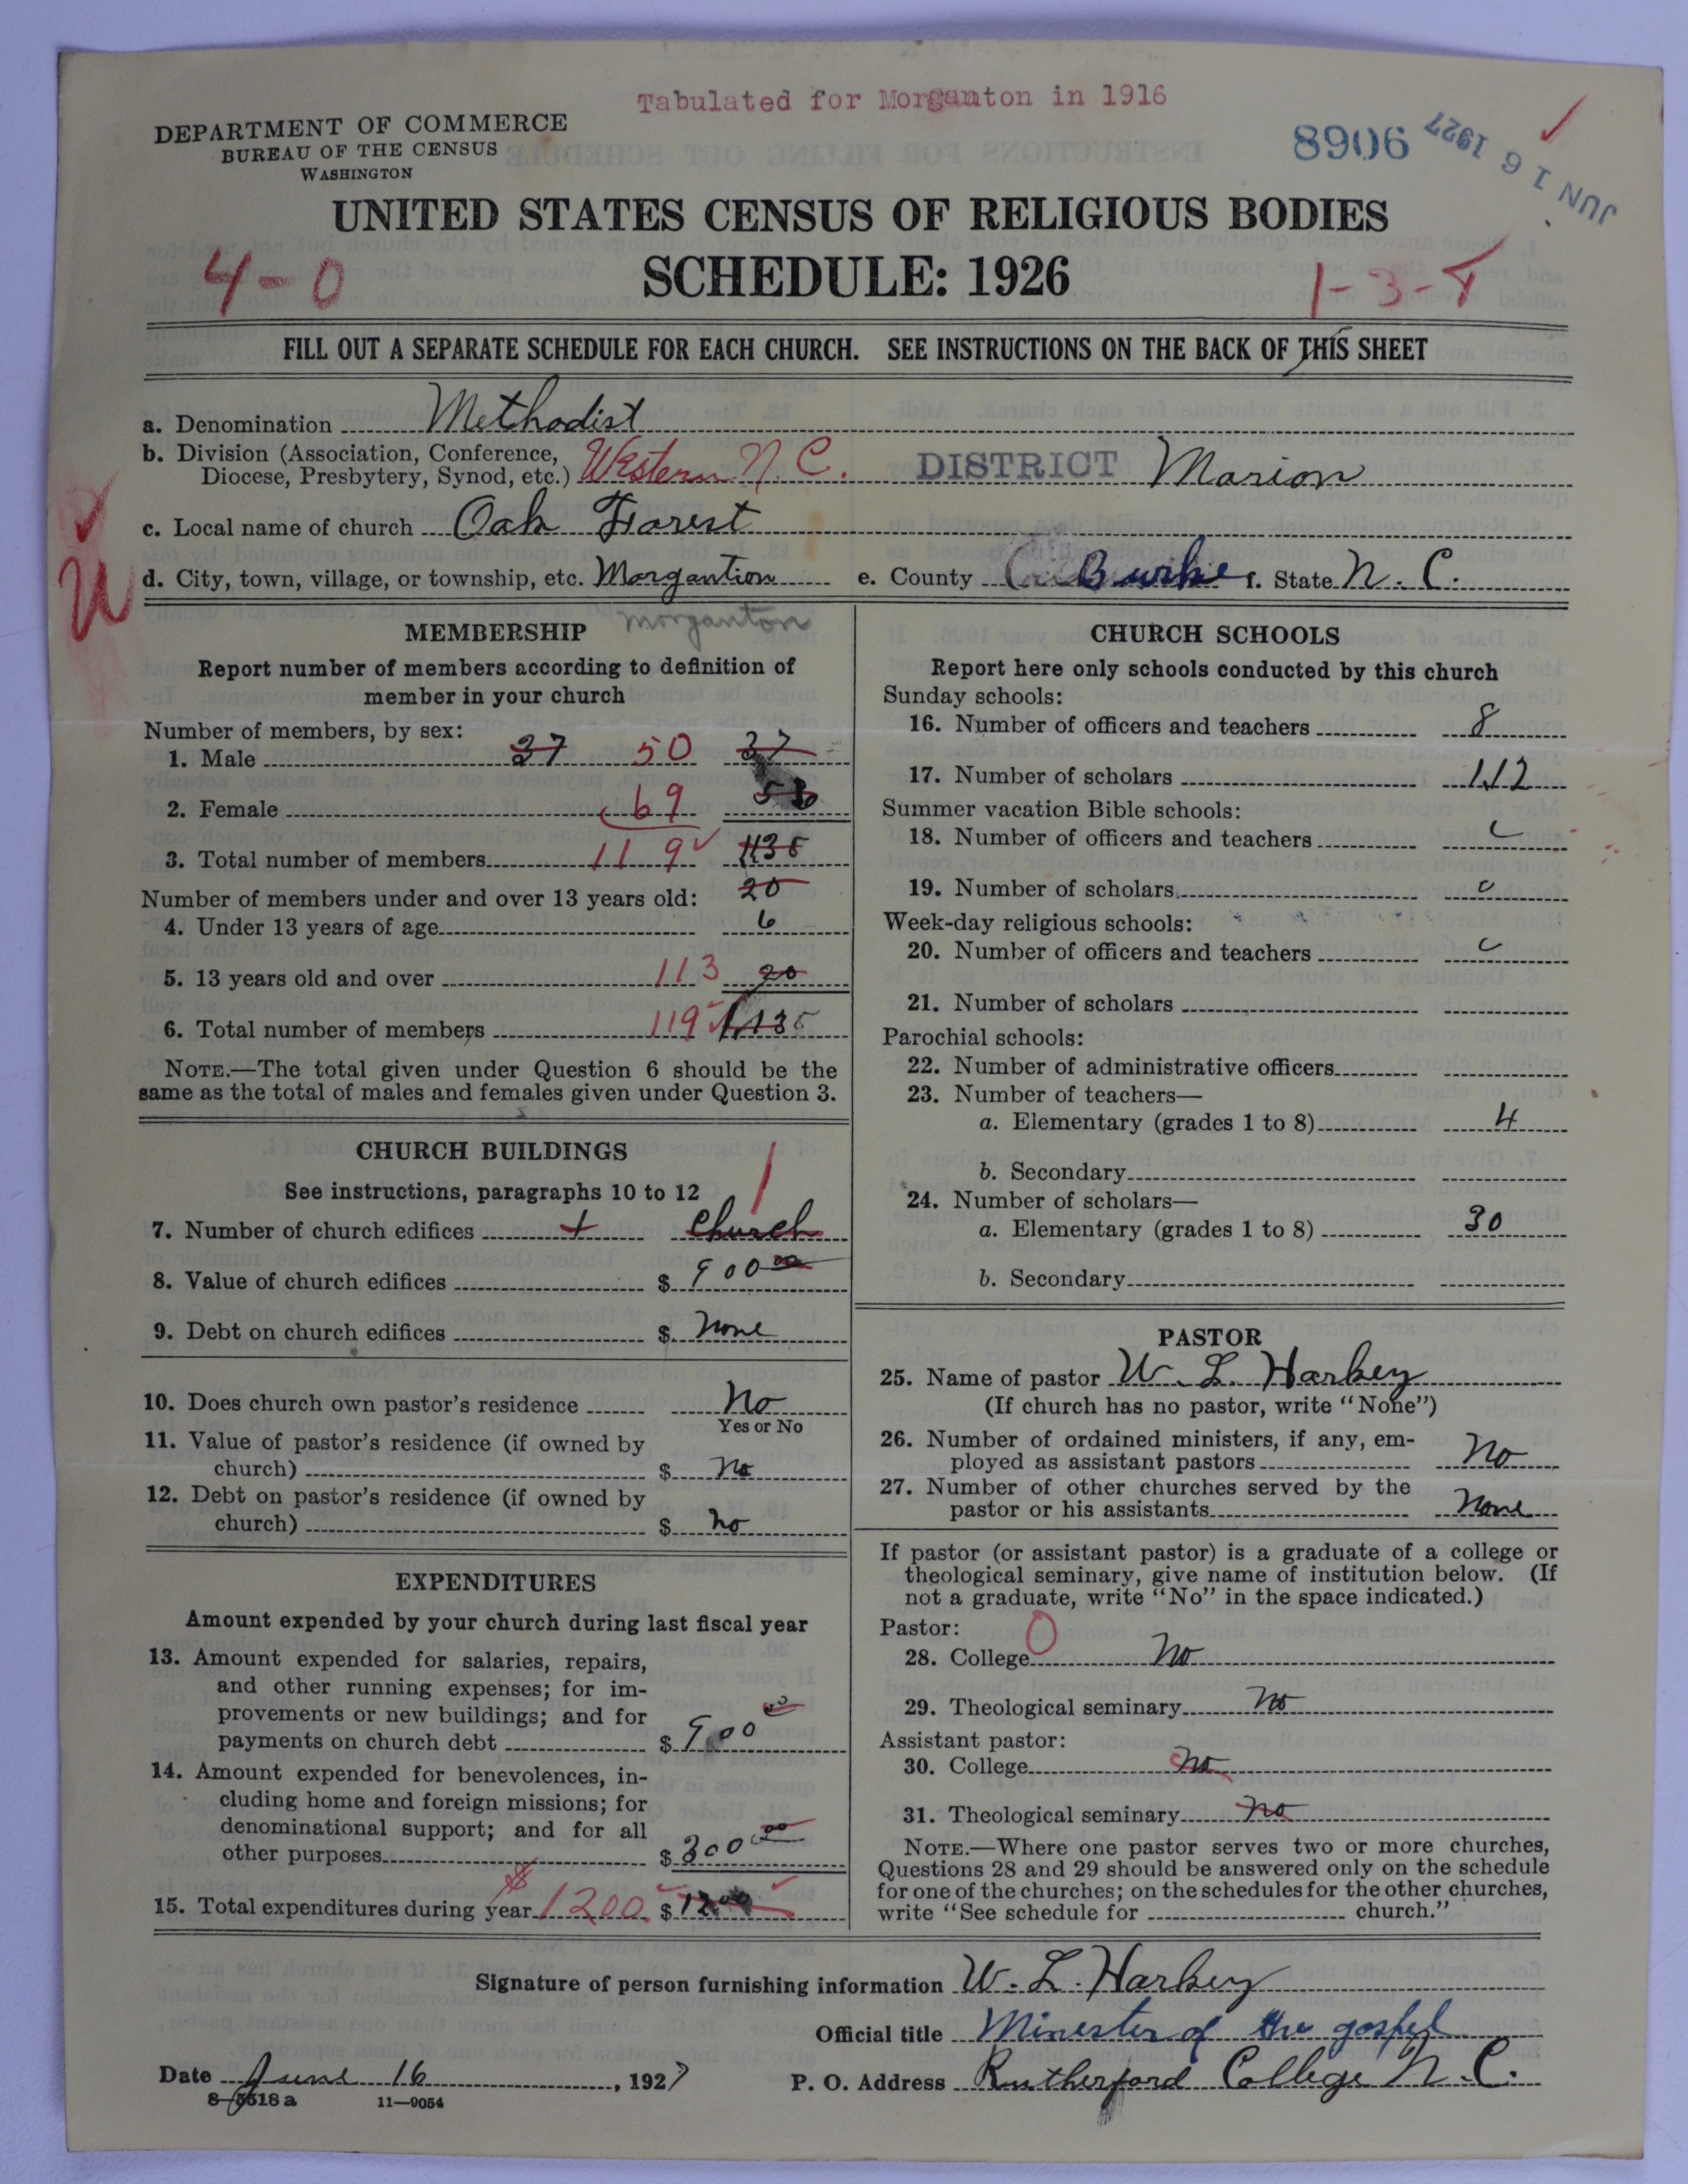 Tabulated for Morganton in 1916
DEPARTMENT OF COMMERCE
BUREAU OF THE CENSUS
WASHINGTON
8906
JUN 16 1927
UNITED STATES CENSUS OF RELIGIOUS BODIES
4-0
SCHEDULE: 1926
1-3-
FILL OUT A SEPARATE SCHEDULE FOR EACH CHURCH. SEE INSTRUCTIONS ON THE BACK OF THIS SHEET
a. Denomination Methodist
b. Division (Association, Conference,
Diocese, Presbytery, Synod, etc.) Western N. C. DISTRICT Marion
c. Local name of church Oak Forest
d. City, town, village, or township, etc. Morgantion e. County Burke f. State N. C.
Morganton
MEMBERSHIP
Report number of members according to definition of
member in your church
Number of members, by sex:
1. Male 37 50 37
2. Female 69
3. Total number of members 119 1135
Number of members under and over 13 years old: 20
4. Under 13 years of age 6
5. 13 years old and over 113 20
6. Total number of members 119 135
NOTE.—The total given under Question 6 should be the
same as the total of males and females given under Question 3.
CHURCH BUILDINGS
See instructions, paragraphs 10 to 12
7. Number of church edifices 1 1 Church
8. Value of church edifices $ 900 00
9. Debt on church edifices $ None
10. Does church own pastor's residence No
Yes or No
11. Value of pastor's residence (if owned by
church) $ No
12. Debt on pastor's residence (if owned by
church) $ No
EXPENDITURES
Amount expended by your church during last fiscal year
13. Amount expended for salaries, repairs,
and other running expenses; for im-
provements or new buildings; and for
payments on church debt $ 900 00
14. Amount expended for benevolences, in-
cluding home and foreign missions; for
denominational support; and for all
other purposes $ 300 00
15. Total expenditures during year $ 1200 $ 1200
CHURCH SCHOOLS
Report here only schools conducted by this church
Sunday schools:
16. Number of officers and teachers 8
17. Number of scholars 112
Summer vacation Bible schools:
18. Number of officers and teachers
19. Number of scholars
Week-day religious schools:
20. Number of officers and teachers
21. Number of scholars
Parochial schools:
22. Number of administrative officers
23. Number of teachers—
a. Elementary (grades 1 to 8) 4
b. Secondary
24. Number of scholars—
a. Elementary (grades 1 to 8) 30
b. Secondary
PASTOR
25. Name of pastor W. L. Harkey
(If church has no pastor, write "None")
26. Number of ordained ministers, if any, em-
ployed as assistant pastors No
27. Number of other churches served by the
pastor or his assistants None
If pastor (or assistant pastor) is a graduate of a college or
theological seminary, give name of institution below. (If
not a graduate, write "No" in the space indicated.)
Pastor: 0
28. College No
29. Theological seminary No
Assistant pastor:
30. College No
31. Theological seminary No
NOTE.—Where one pastor serves two or more churches,
Questions 28 and 29 should be answered only on the schedule
for one of the churches; on the schedules for the other churches,
write "See schedule for church."
Signature of person furnishing information W. L. Harkey
Official title Minester of the gospel
Date June 16, 1927 P. O. Address Rutherford College N. C.
8-5518a 11-9054